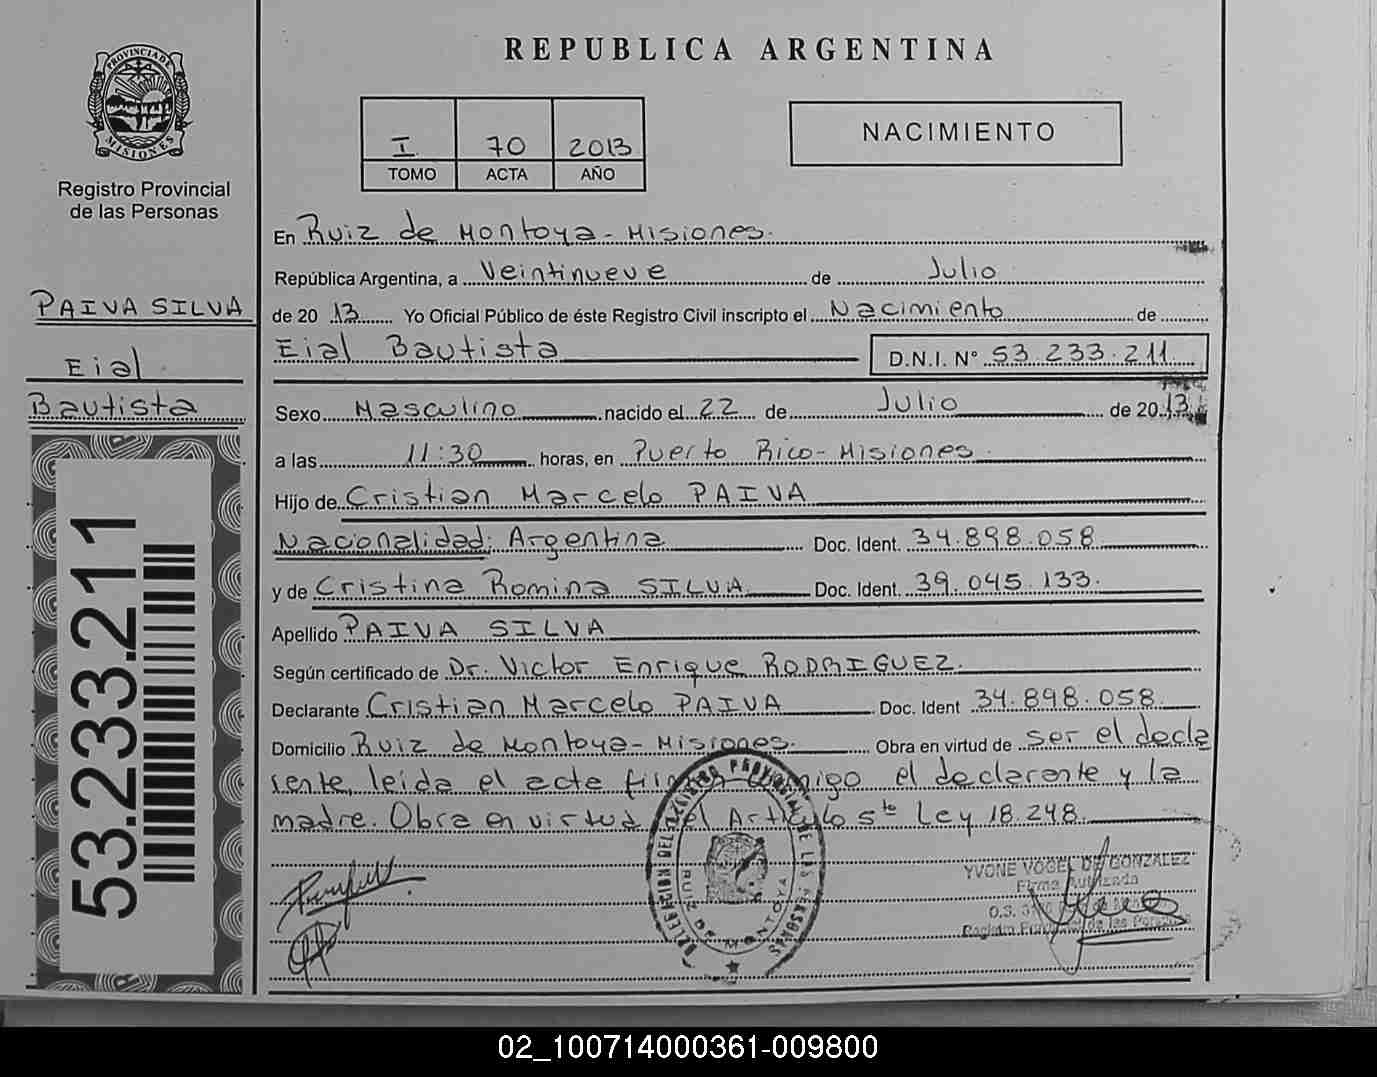 REPUBLICA ARGENTINA
PROVINCIA DE MISIONES
Registro Provincial
de las Personas
I 70 2013
TOMO ACTA AÑO
NACIMIENTO
PAIVA SILVA
Eial
Bautista
53.233.211
En Ruiz de Montoya - Misiones.
República Argentina, a Veintinueve de Julio
de 20 13 Yo Oficial Público de éste Registro Civil inscripto el Nacimiento de
Eial Bautista D.N.I. Nº 53.233.211
Sexo Masculino nacido el 22 de Julio de 20 13
a las 11:30 horas, en Puerto Rico - Misiones.
Hijo de Cristian Marcelo PAIVA
Nacionalidad: Argentina Doc. Ident. 34.898.058
y de Cristina Romina SILVA Doc. Ident. 39.045.133.
Apellido PAIVA SILVA
Según certificado de Dr. Victor Enrique RODRIGUEZ.
Declarante Cristian Marcelo PAIVA Doc. Ident 34.898.058
Domicilio Ruiz de Montoya - Misiones. Obra en virtud de ser el decla
rente, leida el acte conmigo el declarante y la
madre. Obra en virtud del Articulo 5to Ley 18.248.
DELEGACION DEL REGISTRO PROVINCIAL DE LAS PERSONAS
RUIZ DE MONTOYA
YVONE VOGEL DE GONZALEZ
Firma Autorizada
O.S.
Registro Provincial de las Personas
02_100714000361-009800